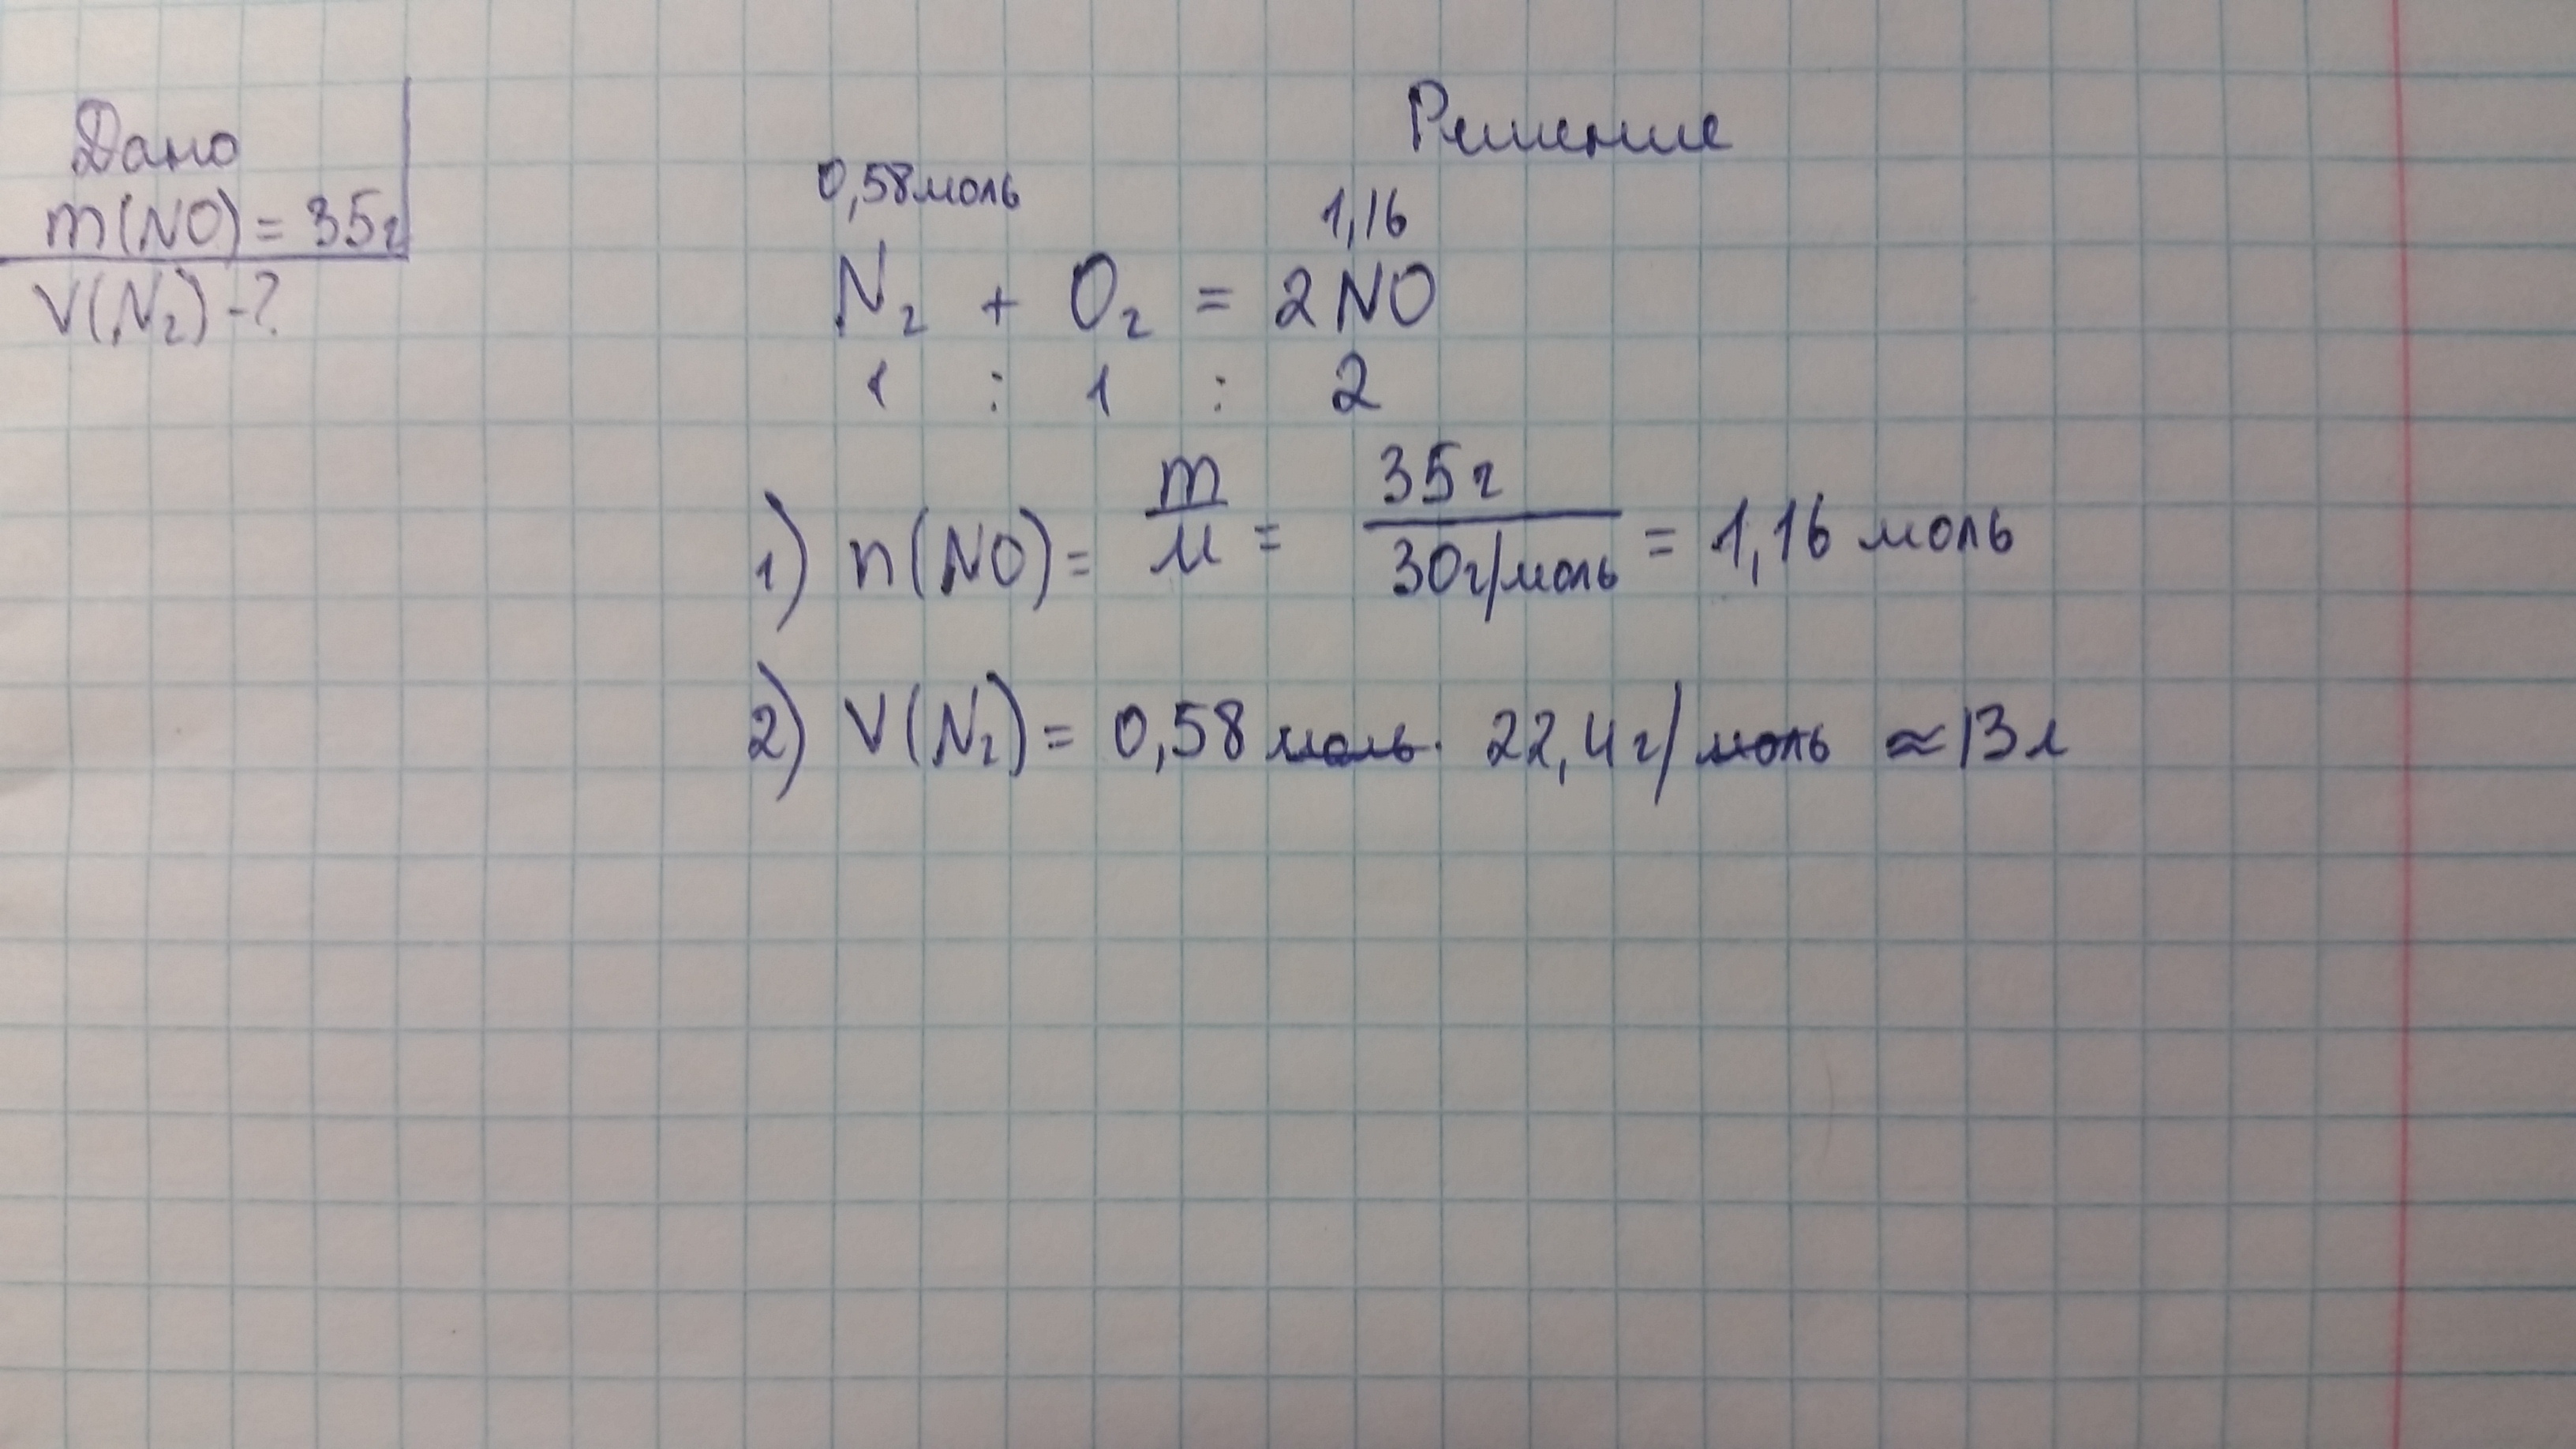 Дано
m(NO) = 35г
V(N₂) -?
Решение
0,58моль 1,16
N₂ + O₂ = 2NO
1 : 1 : 2
1) n(NO) = m/M = 35г/30г/моль = 1,16 моль
2) V(N₂) = 0,58 моль · 22,4г/моль ≈ 13л